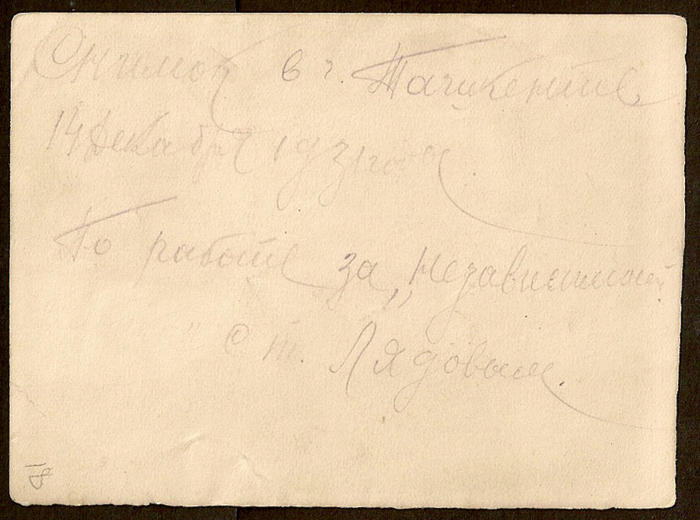 Снимок в г. Ташкенте
14 декабря 1931 года
По работе за „Независимой
" с т. Лядовым.